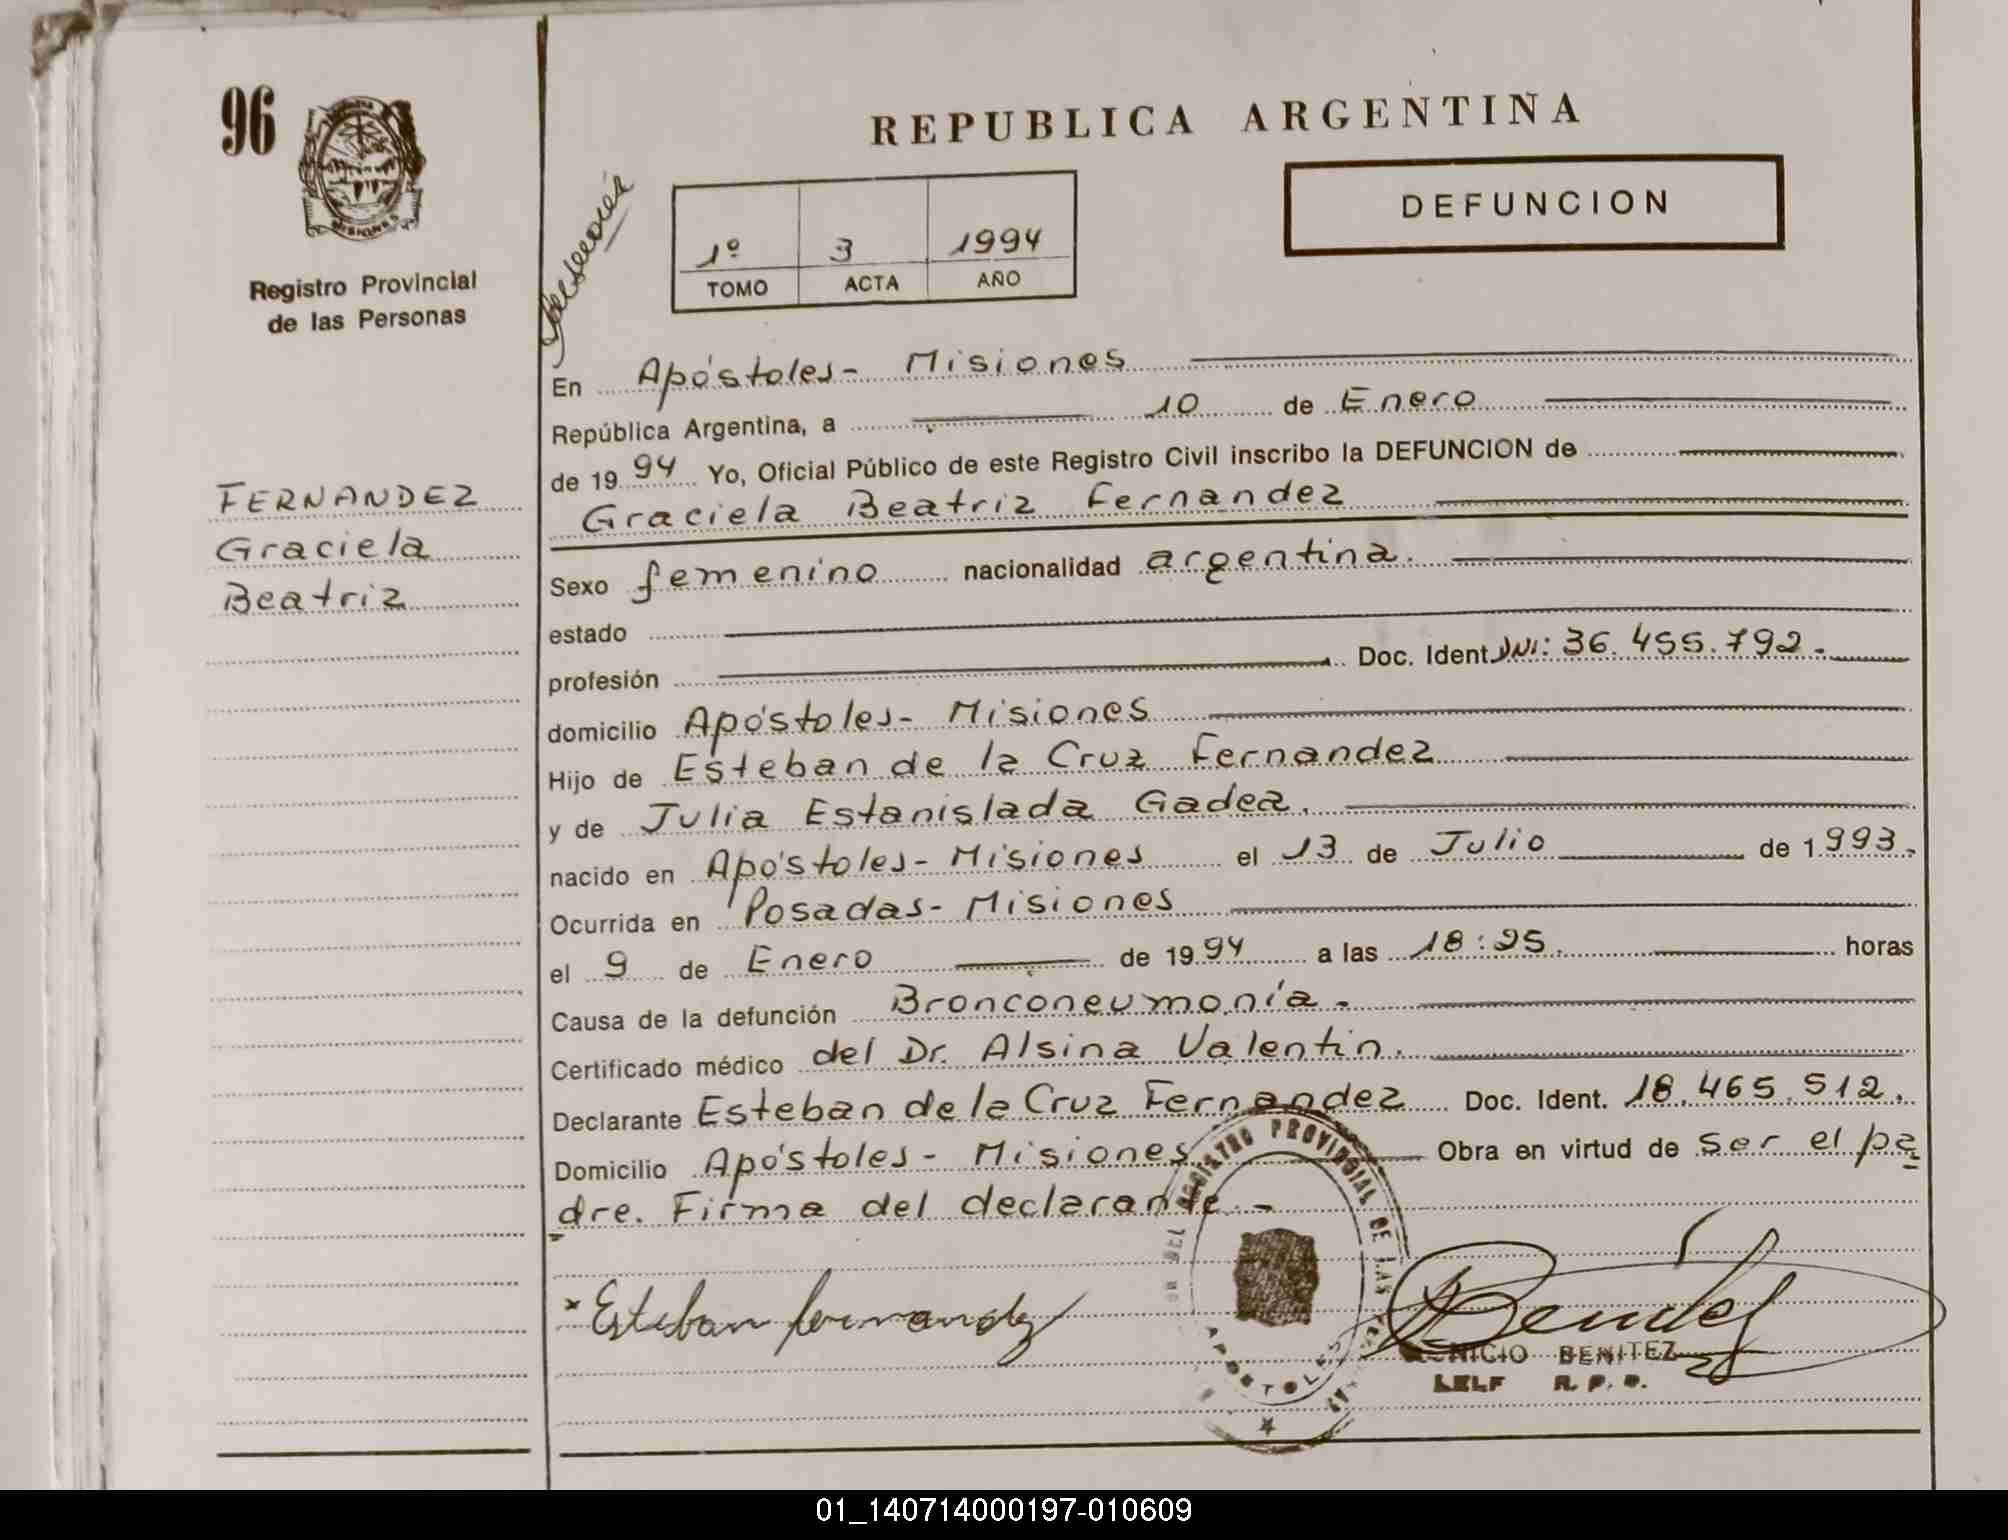 96
MISIONES
Registro Provincial
de las Personas
FERNANDEZ
Graciela
Beatriz
REPUBLICA ARGENTINA
DEFUNCION
1º 3 1994
TOMO ACTA AÑO
En Apóstoles- Misiones
República Argentina, a 10 de Enero
de 19 94 Yo, Oficial Público de este Registro Civil inscribo la DEFUNCION de
Graciela Beatriz Fernandez
Sexo femenino nacionalidad argentina.
estado
profesión Doc. Ident. DNI: 36.455.792.
domicilio Apóstoles- Misiones
Hijo de Esteban de la Cruz Fernandez
y de Julia Estanislada Gadea.
nacido en Apóstoles- Misiones el 13 de Julio de 1993.
Ocurrida en Posadas- Misiones
el 9 de Enero de 1994 a las 18:25. horas
Causa de la defunción Bronconeumonía.
Certificado médico del Dr. Alsina Valentin.
Declarante Esteban de la Cruz Fernandez Doc. Ident. 18.465.512.
Domicilio Apóstoles- Misiones Obra en virtud de ser el pa
dre. Firma del declarante.-
REGISTRO PROVINCIAL DE LAS
APOSTOLES
x Esteban fernandez
BENITEZ
R. P. P.
01_140714000197-010609